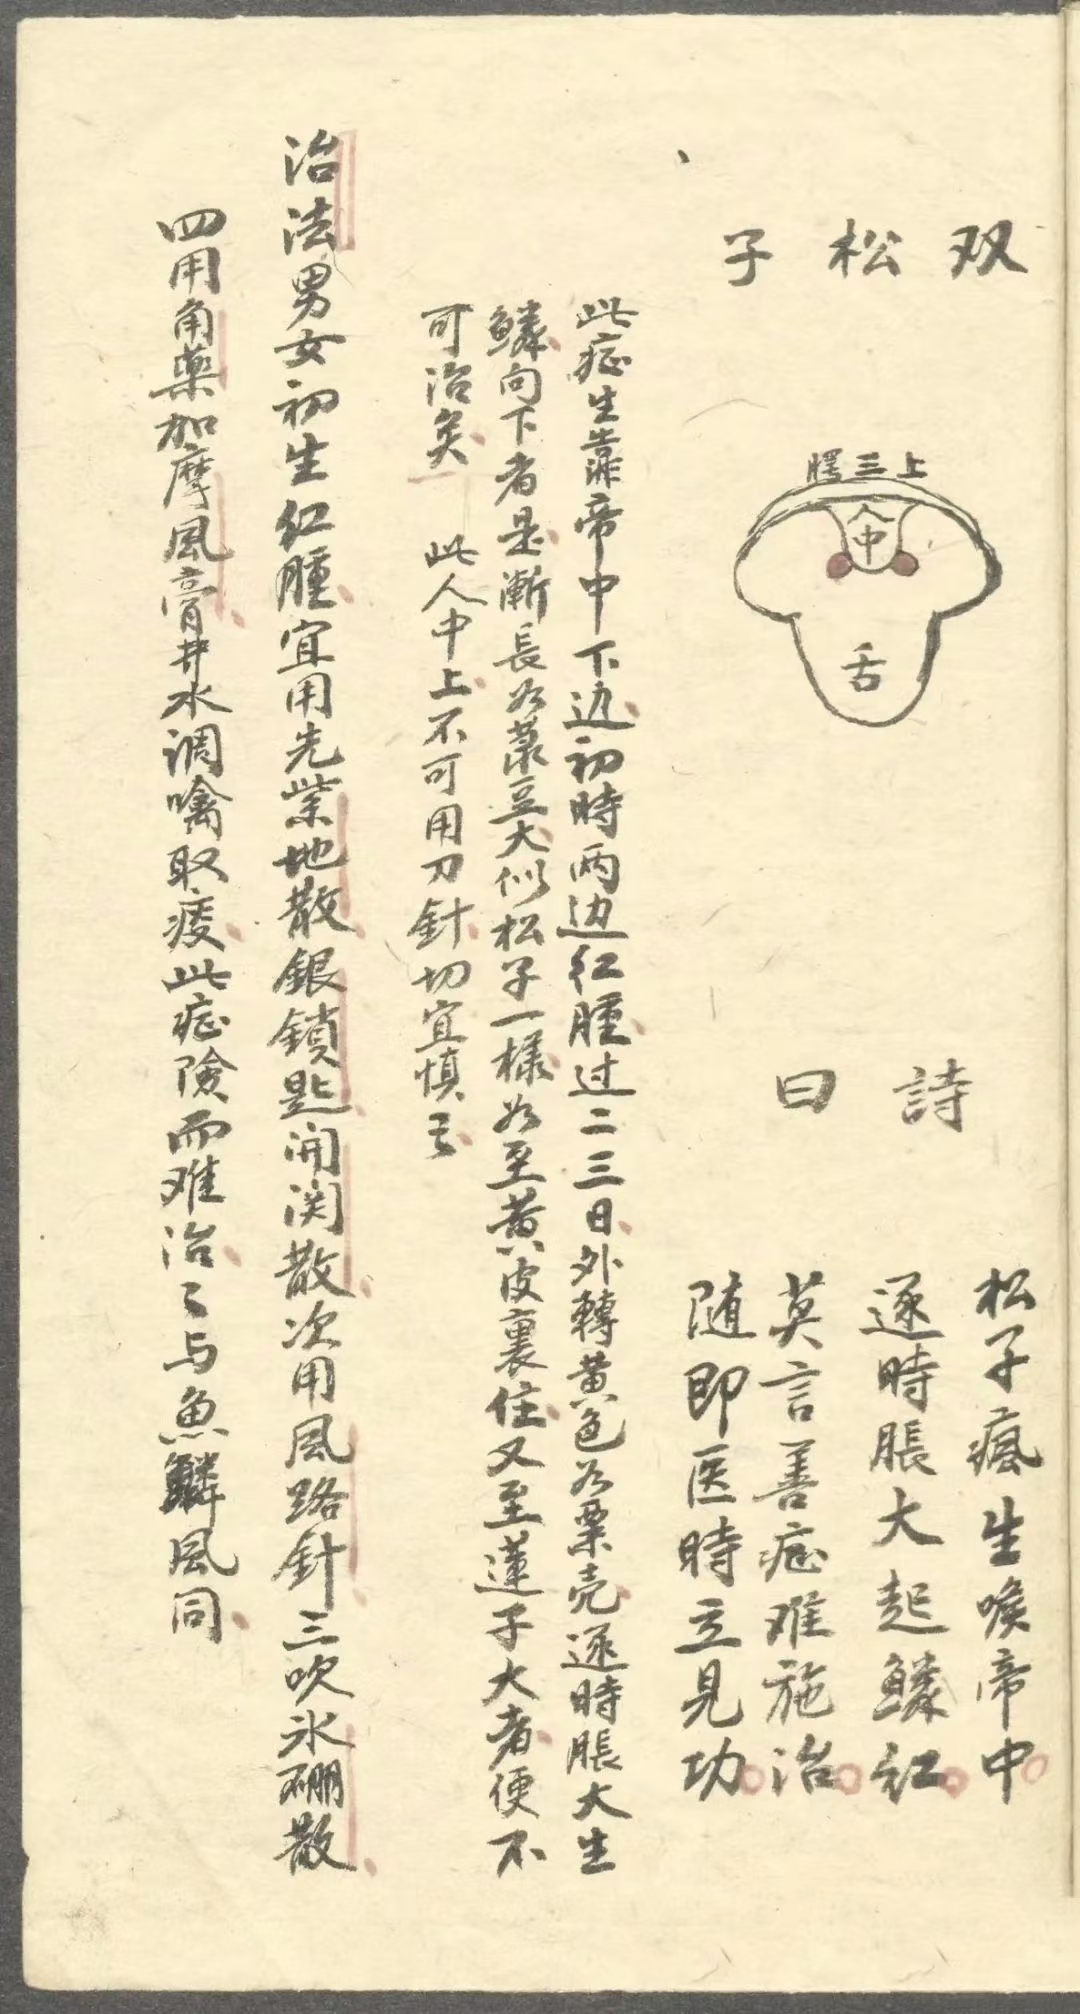 双松子
上三腭
人中
舌
詩曰
松子瘋生喉帝中
逐時脹大起鱗紅
莫言善症难施治
随即医時立見功
此症生靠帝中下边初時两边红腫过二三日外轉黄色为粟壳逐時脹大生
鱗向下者是漸長为菉豆大似松子一樣为至黄皮裏住又至蓮子大者便不
可治矣 此人中上不可用刀針切宜慎之
治法男女初生红腫宜用先紫地散銀鎖匙開関散次用風路針三吹氷硼散
四用角藥加摩風膏井水調噙取痰此症險而难治〻与魚鱗風同